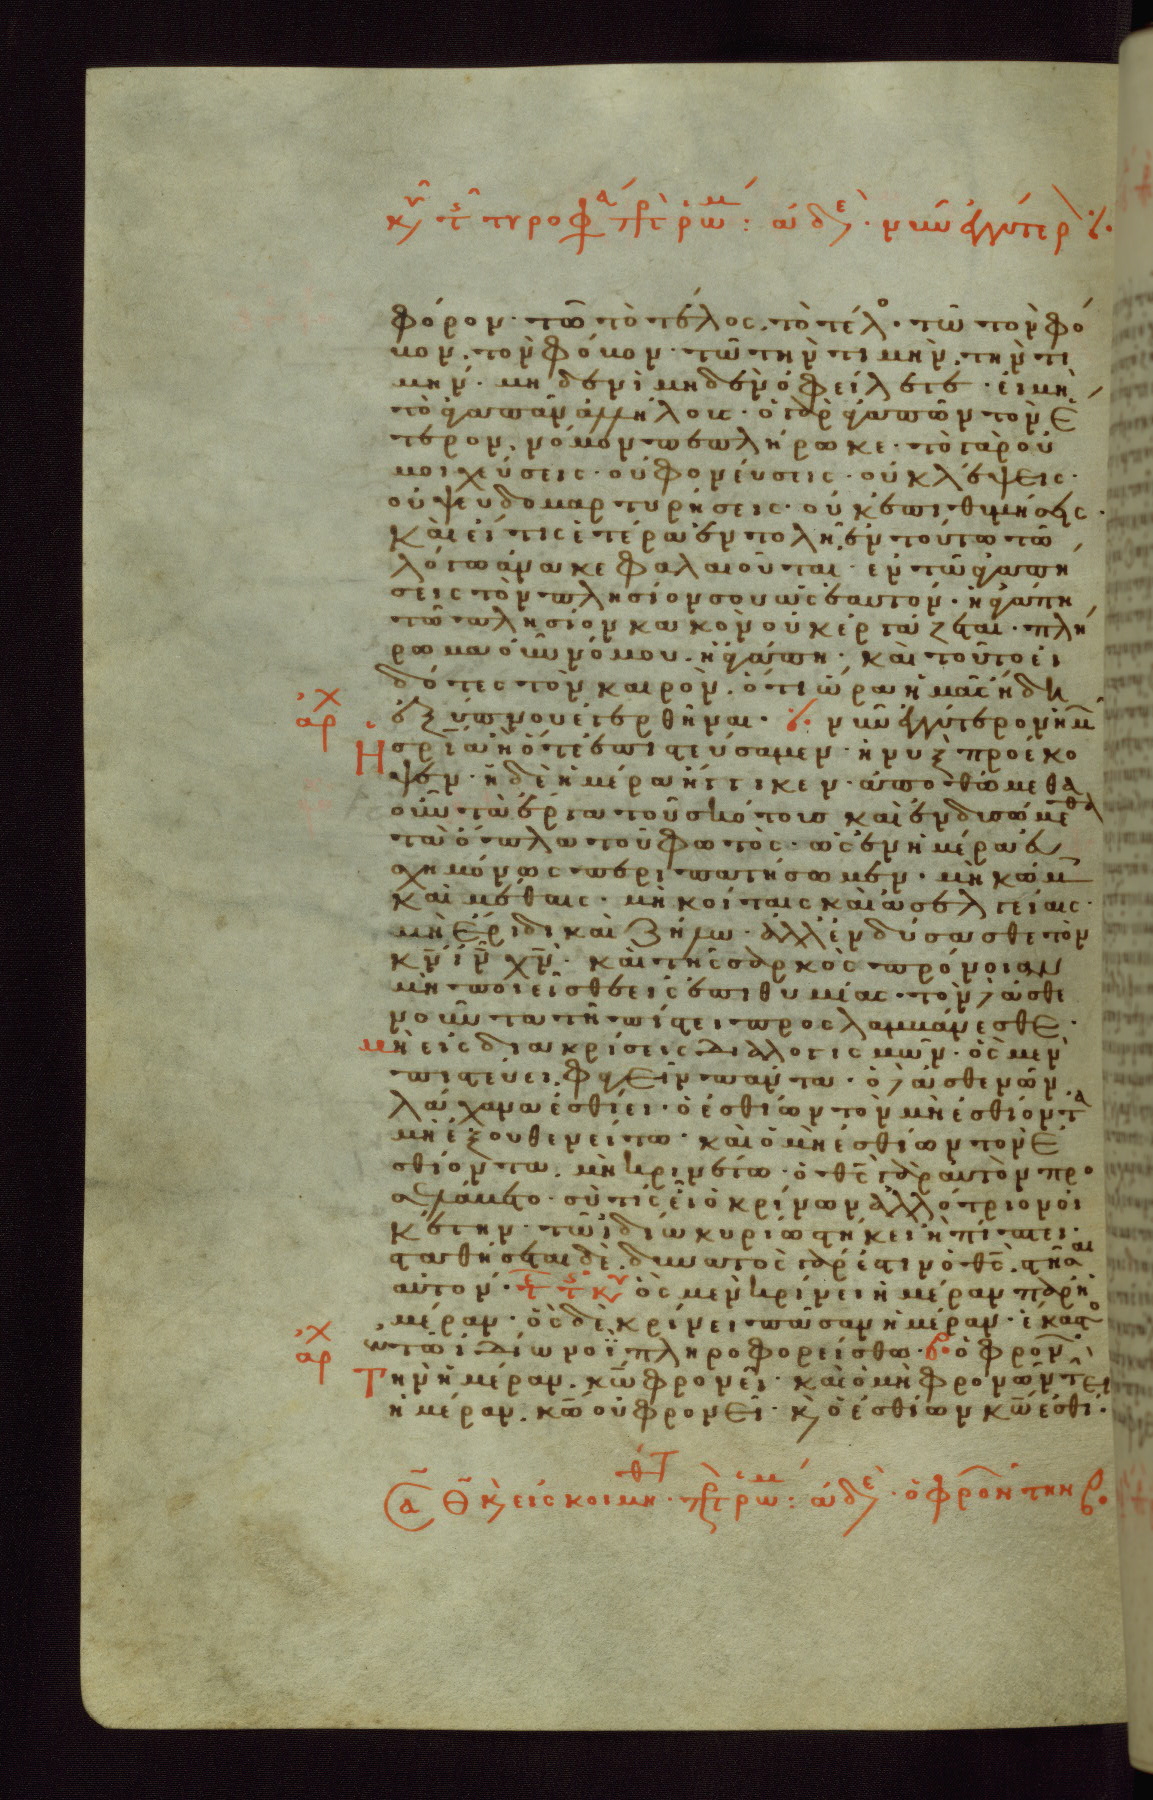 κυ τῆς τυροφα πρ ρωμ : ἀδε · νῦν ἐγγύτερ
φόρον · τῶ τὸ τέλος, τὸ τέλο · τῶ τὸν φό
νον, τὸν φόνον · τῶ τὴν τιμὴν, τὴν τι
μήν · μηδενὶ μηδὲν ὀφείλετε · εἰ μὴ
τὸ ἀγαπᾶν ἀλλήλους · ὁ γὰρ ἀγαπῶν τὸν ἕ
τερον, νόμον πεπλήρωκε · τὸ γὰρ οὐ
μοιχεύσεις · οὐ φονεύσεις · οὐ κλέψεις ·
οὐ ψευδομαρτυρήσεις · οὐκ ἐπιθυμήσεις ·
καὶ εἴ τις ἑτέρα ἐντολὴ, ἐν τούτω τῶ
λόγω ἀνακεφαλαιοῦται · ἐν τῶ ἀγαπή
σεις τὸν πλησίον σου ὡς ἑαυτόν · ἡ ἀγάπη
τῶ πλησίον κακὸν οὐκ ἐργάζεται · πλή
ρωμα οὖν νόμου, ἡ ἀγάπη · καὶ τοῦτο εἰ
δότες τὸν καιρὸν, ὅτι ὥρα ἡμᾶς ἤδη
ἐξ ὕπνου ἐγερθῆναι · νῦν ἐγγύτερον ἡμ
Ησρία ἢ ὅτε ἐπιστεύσαμεν · ἡ νυξ προέκο
ψεν · ἡ δὲ ἡμέρα ἤγγικεν · ἀποθώμεθα
οὖν τὰ ἔργα τοῦ σκότους καὶ ἐνδυσώμεθα
τὰ ὅπλα τοῦ φωτὸς · ὡς ἐν ἡμέρα εὐ
σχημόνως περιπατήσωμεν · μὴ κώμ
καὶ μέθαις · μὴ κοίταις καὶ ἀσελγείαις ·
μὴ ἔριδι καὶ ζήλω · ἀλλ' ἐνδύσασθε τὸν
κν ιν χν · καὶ τῆς σαρκὸς πρόνοιαν
μὴ ποιεῖσθε εἰς ἐπιθυμίας · τὸν δ' ἀσθε
νοῦντα τῆ πίστει προσλαμβάνεσθε ·
μὴ εἰς διακρίσεις διαλογισμῶν · ὃς μὲν
πιστεύει, φαγεῖν πάντα · ὁ δ' ἀσθενῶν,
λάχανα ἐσθίει · ὁ ἐσθίων τὸν μὴ ἐσθίοντα
μὴ ἐξουθενείτω · καὶ ὁ μὴ ἐσθίων τὸν ἐ
σθίοντα, μὴ κρινέτω · ὁ θς γὰρ αὐτὸν προ
σελάβετο · σὺ τίς εἶ ὁ κρίνων ἀλλότριον οἰ
κέτην · τῶ ἰδίω κυρίω στήκει ἢ πίπτει ·
σταθήσεται δὲ, δυνατὸς γάρ ἐστιν ὁ θς, στῆσαι
αὐτόν · ὃς μὲν κρίνει ἡμέραν παρ' ἡ
μέραν · ὃς δὲ κρίνει πᾶσαν ἡμέραν · ἕκαστο
ἐν τῶ ἰδίω νοῒ πληροφορείσθω · ὁ φρον
Τὴν ἡμέραν, κω φρονεῖ · καὶ ὁ μὴ φρονῶν τ
ἡμέραν, κω οὐ φρονεῖ · κ ὁ ἐσθίων κω ἐσθί ·
εἰς κοιμη · πρ ρωμ : ἀδε · ὁ φρον τὴν